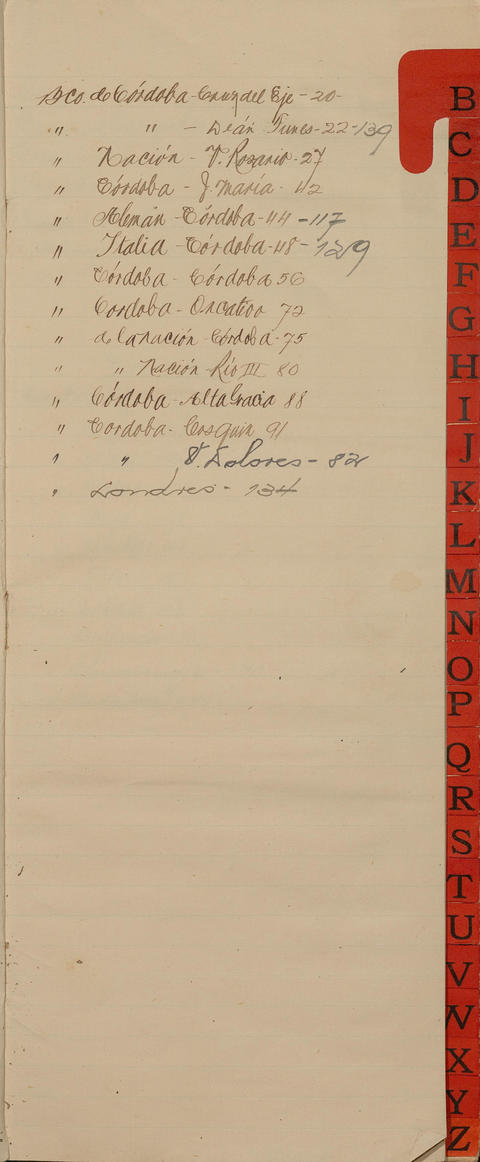 Bco. de Córdoba - Cruz del Eje - 20 -
" " - Deán Funes - 22 - 139
" Nación - V. Rosario - 27
" Córdoba - J. María - 42
" Alemán - Córdoba - 44 - 117
" Italia - Córdoba - 48 - 129
" Córdoba - Córdoba 56
" Cordoba - Oncativo 72
" de la Nación - Córdoba - 75
" " Nación - Río III 80
" Córdoba - Alta Gracia 88
" Cordoba - Cosquin 91
" " V. Dolores - 82
" Londres - 134
B
C
D
E
F
G
H
I
J
K
L
M
N
O
P
Q
R
S
T
U
V
W
X
Y
Z